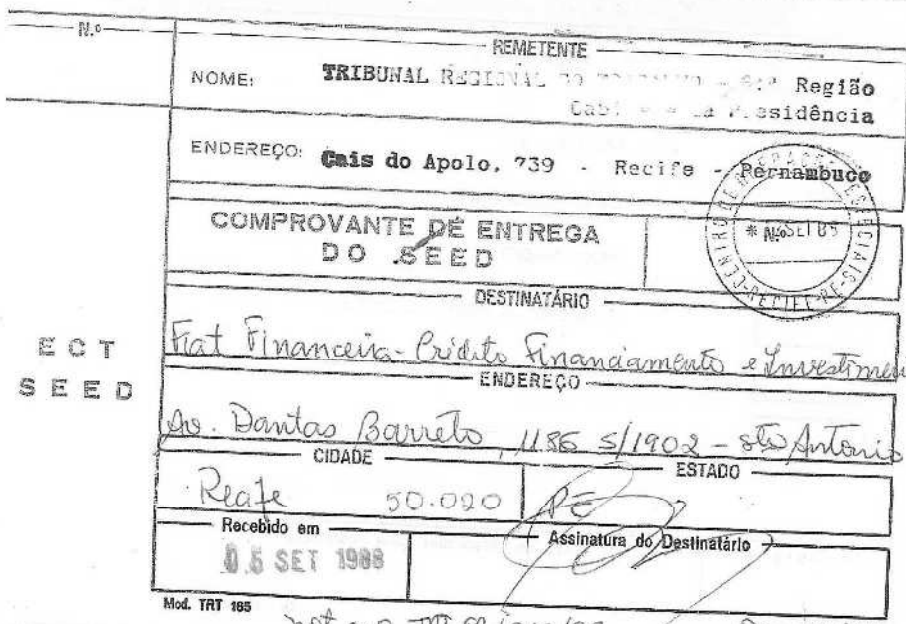 N.º
REMETENTE
NOME: TRIBUNAL REGIONAL Região
Presidência
ENDEREÇO: Cais do Apolo, 739 - Recife - Pernambuco
COMPROVANTE DE ENTREGA
DO SEED
* N.º SET 89
ESPECIAIS
DESTINATÁRIO
Fiat Financeira - Crédito Financiamento e Investimen
ECT
SEED
ENDEREÇO
Av. Dantas Barreto, 1186 S/1902 - Sto Antonio
CIDADE
ESTADO
Recife 50.020 PE
Recebido em
Assinatura do Destinatário
05 SET 1988
Mod. TRT 165